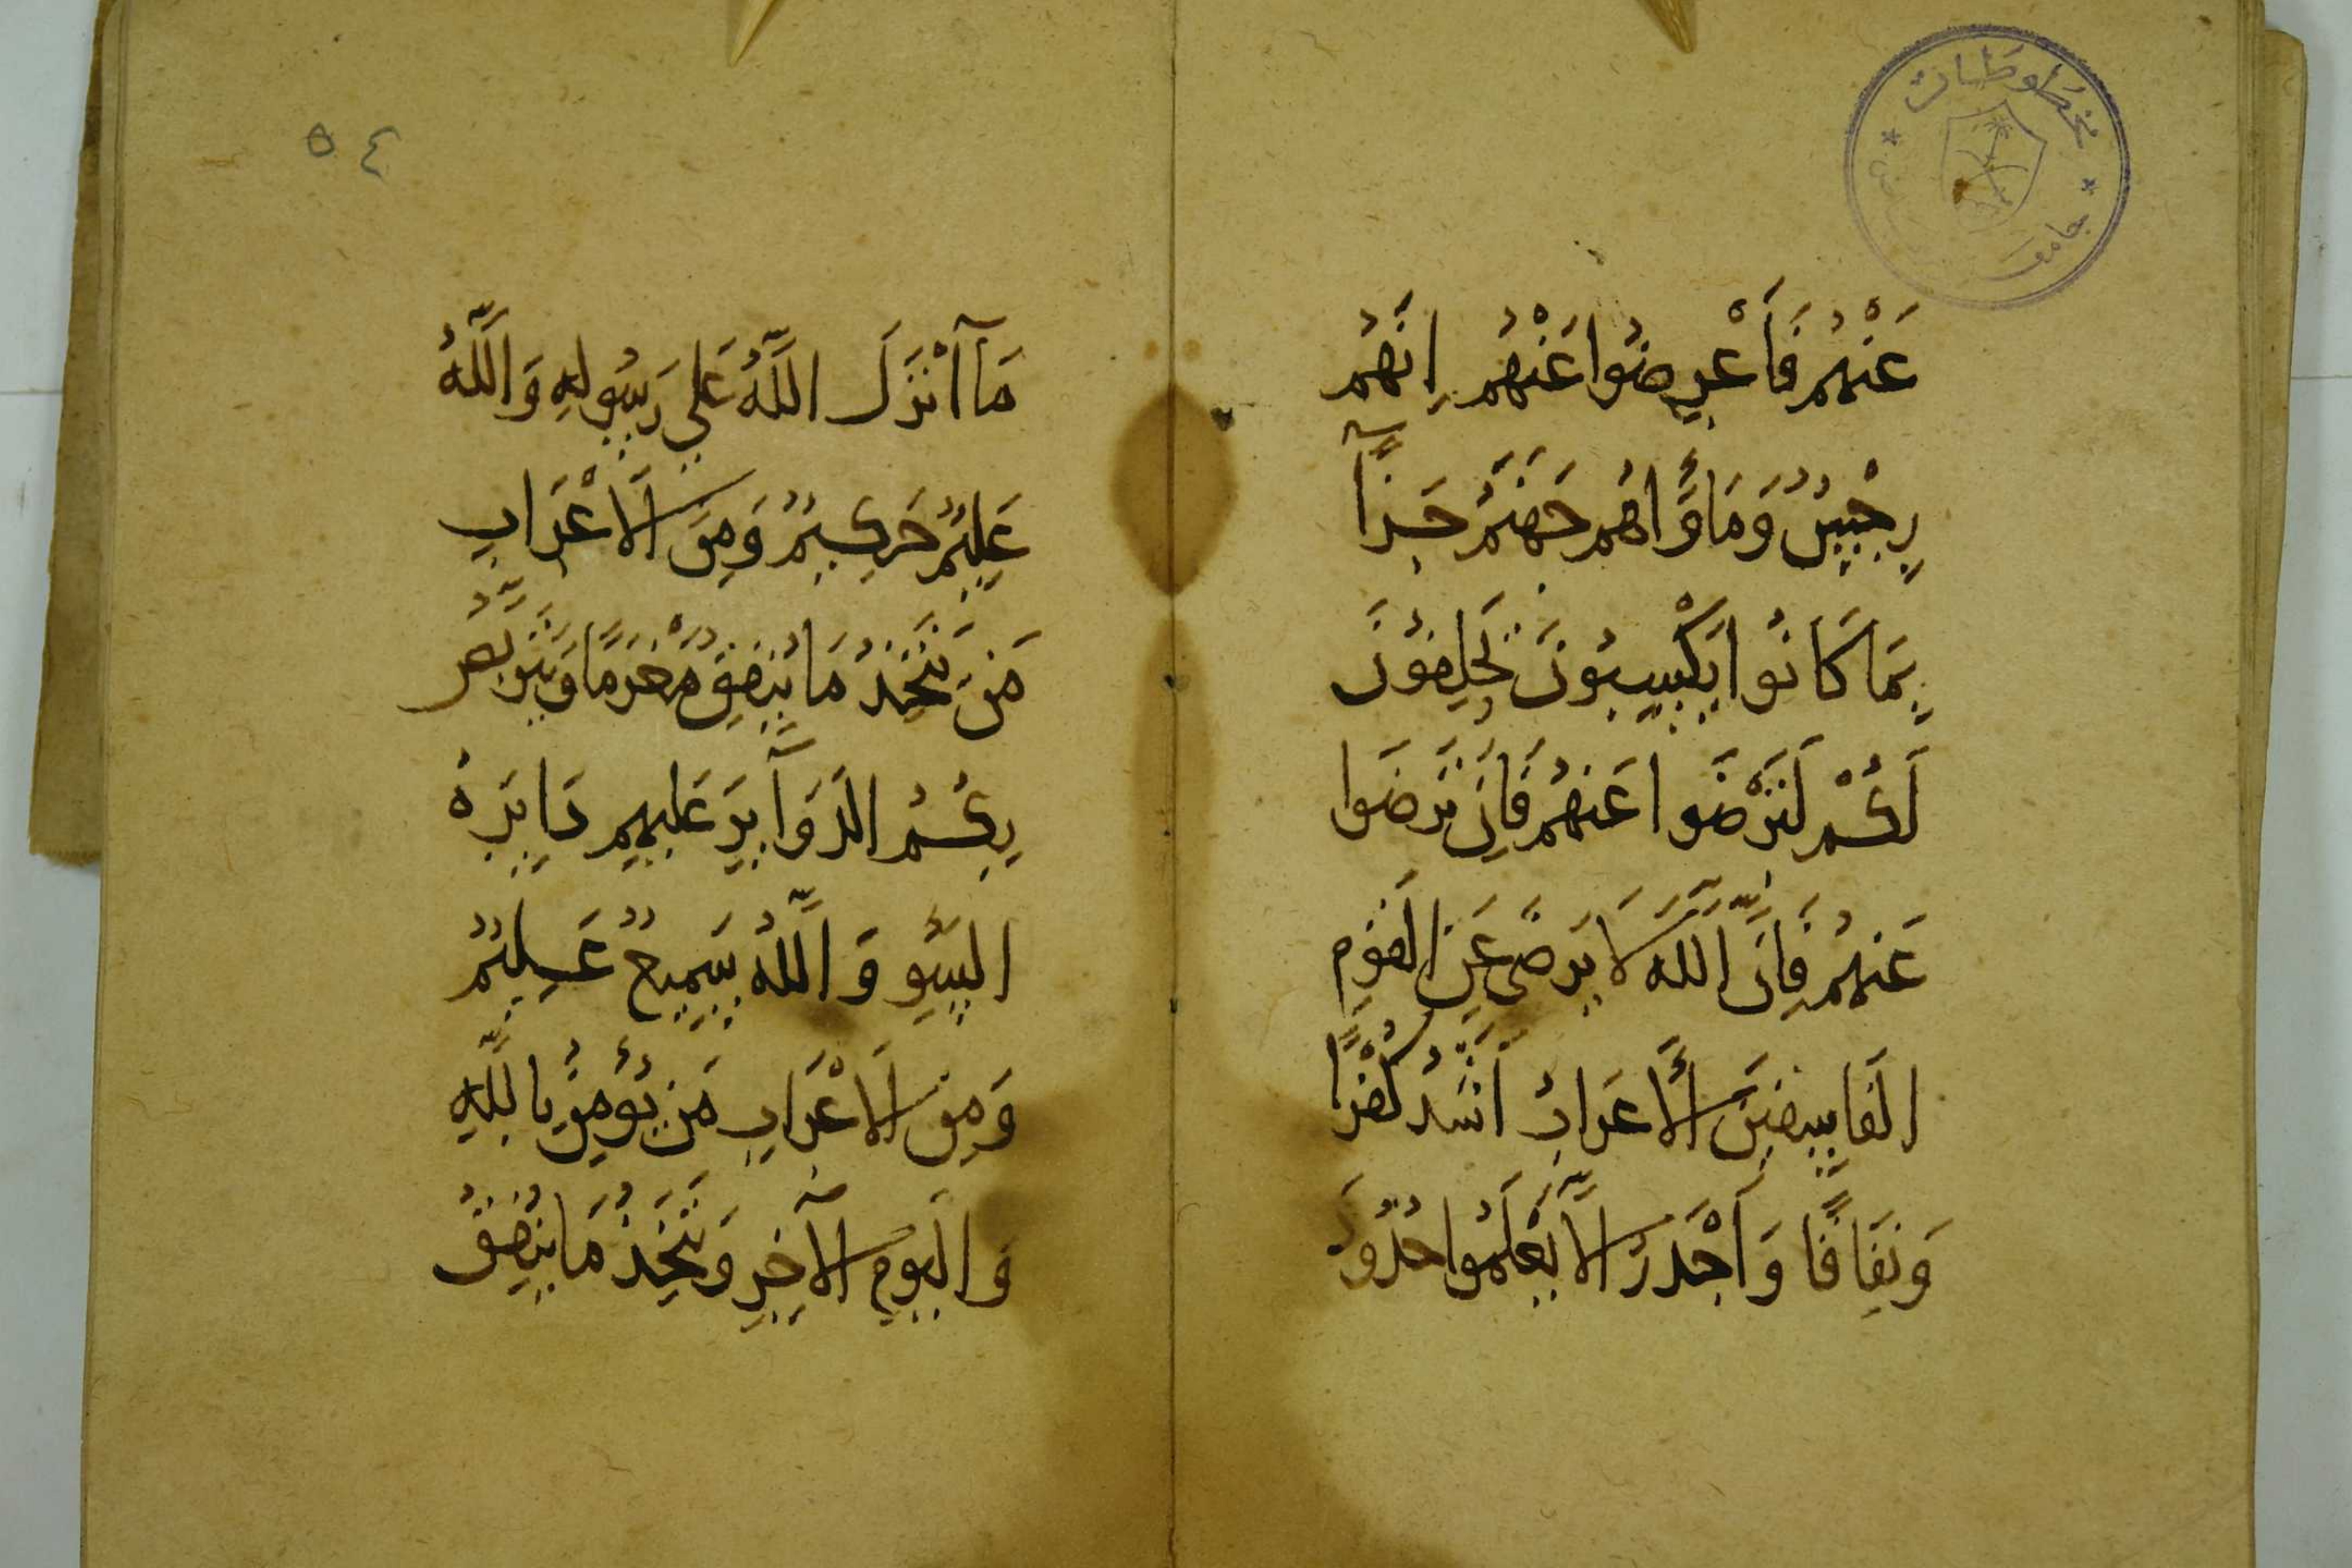 مخطوطات
جامعة
عَنْهُمْ فَأَعْرِضُوا عَنْهُمْ إِنَّهُمْ
رِجْسٌ وَمَأْوَاهُمْ جَهَنَّمُ جَزَآءً
بِمَا كَانُوا يَكْسِبُونَ يَحْلِفُونَ
لَكُمْ لِتَرْضَوا عَنْهُمْ فَإِن تَرْضَوا
عَنْهُمْ فَإِنَّ اللَّهَ لَا يَرْضَى عَنِ الْقَوْمِ
الْفَاسِقِينَ الْأَعْرَابُ أَشَدُّ كُفْرًا
وَنِفَاقًا وَأَجْدَرُ أَلَّا يَعْلَمُوا حُدُودَ
٥٤
مَآ أَنْزَلَ اللَّهُ عَلَى رَسُولِهِ وَاللَّهُ
عَلِيمٌ حَكِيمٌ وَمِنَ الْأَعْرَابِ
مَنْ يَتَّخِذُ مَا يُنْفِقُ مَغْرَمًا وَيَتَرَبَّصُ
بِكُمُ الدَّوَآئِرَ عَلَيْهِمْ دَائِرَةُ
السَّوْءِ وَاللَّهُ سَمِيعٌ عَلِيمٌ
وَمِنَ الْأَعْرَابِ مَنْ يُؤْمِنُ بِاللَّهِ
وَالْيَوْمِ الْآخِرِ وَيَتَّخِذُ مَا يُنْفِقُ